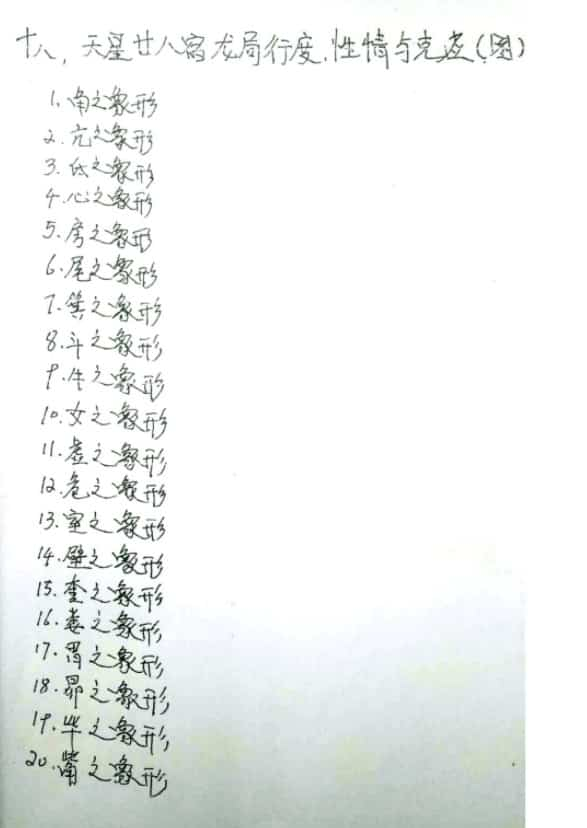 十八，天星廿八宿龙局行度，性情与克应(图)
1. 角之象形
2. 亢之象形
3. 氐之象形
4. 心之象形
5. 房之象形
6. 尾之象形
7. 箕之象形
8. 斗之象形
9. 牛之象形
10. 女之象形
11. 虚之象形,
12. 危之象形
13. 室之象形
14. 壁之象形
15. 奎之象形
16. 娄之象形,
17. 胃之象形
18. 昴之象形,
19. 毕之象形,
20. 觜之象形